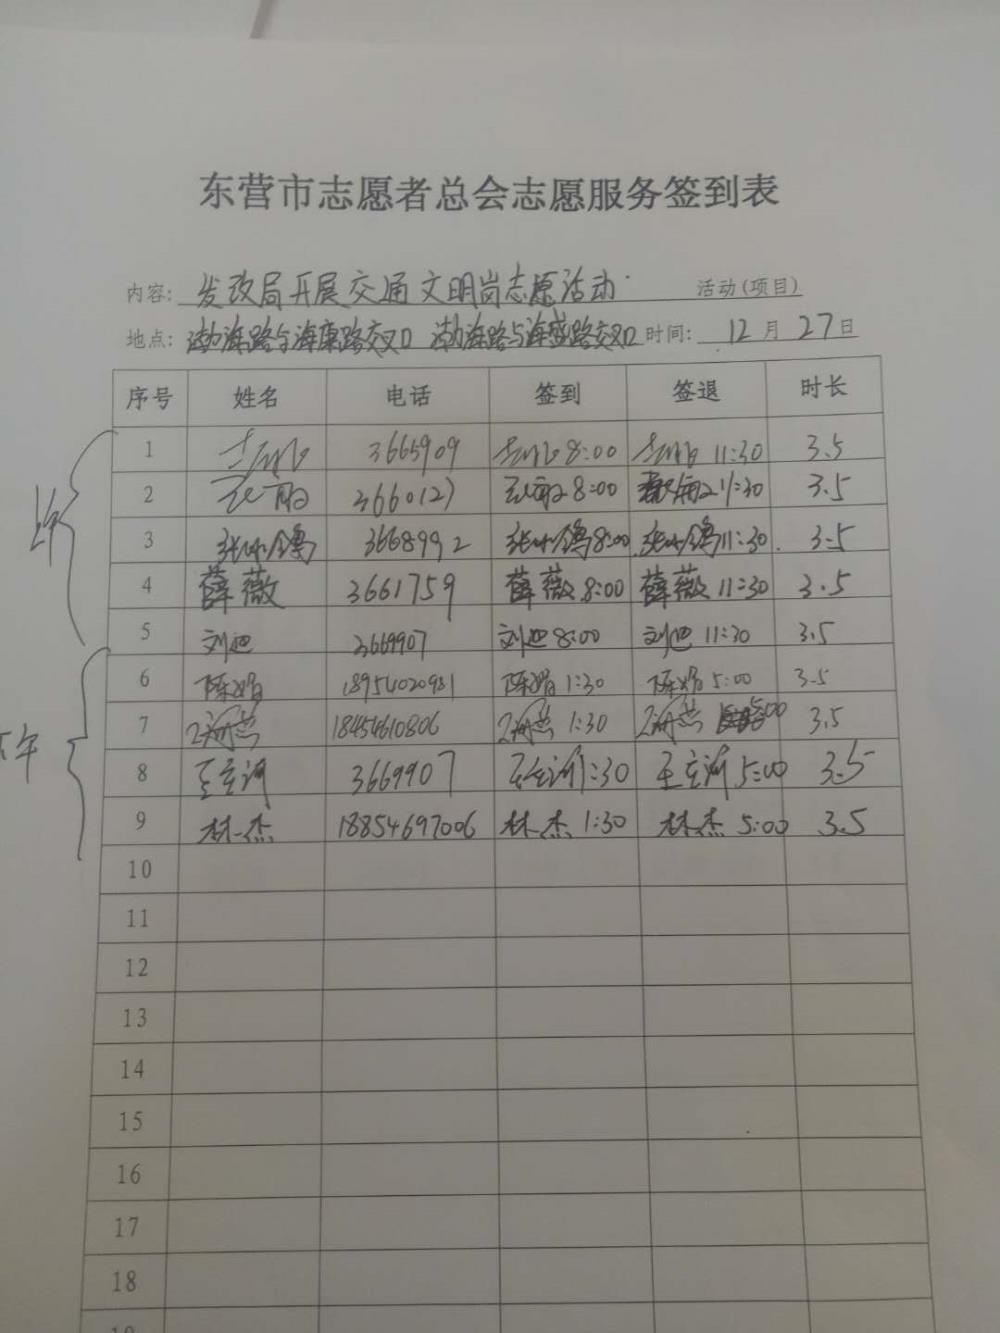 东营市志愿者总会志愿服务签到表
内容: 发改局开展交通文明岗志愿活动 活动(项目)
地点: 渤海路与海康路交叉口 渤海路与海盛路交叉口 时间: 12月27日
序号 姓名 电话 签到 签退 时长
上午
1 3665909 8:00 11:30 3.5
2 8:00 11:30 3.5
3 3668992 8:00 11:30 3.5
4 薛薇 3661759 薛薇 8:00 薛薇 11:30 3.5
5 刘迪 3669907 刘迪 8:00 刘迪 11:30 3.5
下午
6 陈娟 陈娟 1:30 陈娟 5:00 3.5
7 18454610806 1:30 5:00 3.5
8 3669907 1:30 5:00 3.5
9 林杰 18854697006 林杰 1:30 林杰 5:00 3.5
10
11
12
13
14
15
16
17
18
19